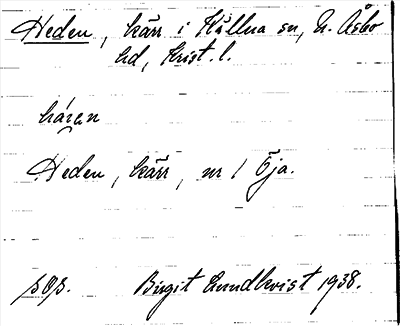 Heden, kärr i Källna sn, N. Åsbo
hd, Krist. l.
Heden, kärr, nr 1 Öja.
Birgit Lundkvist 1938.